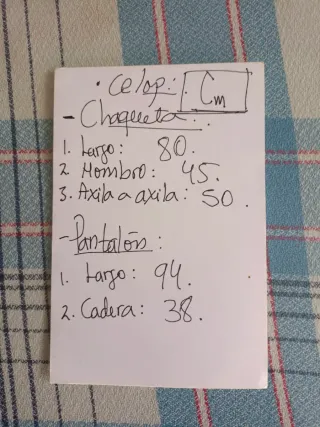 · Celop: Cm
- Chaqueta:
1. Largo: 80.
2. Hombro: 45.
3. Axila a axila: 50.
- Pantalón:
1. Largo: 94.
2. Cadera: 38.